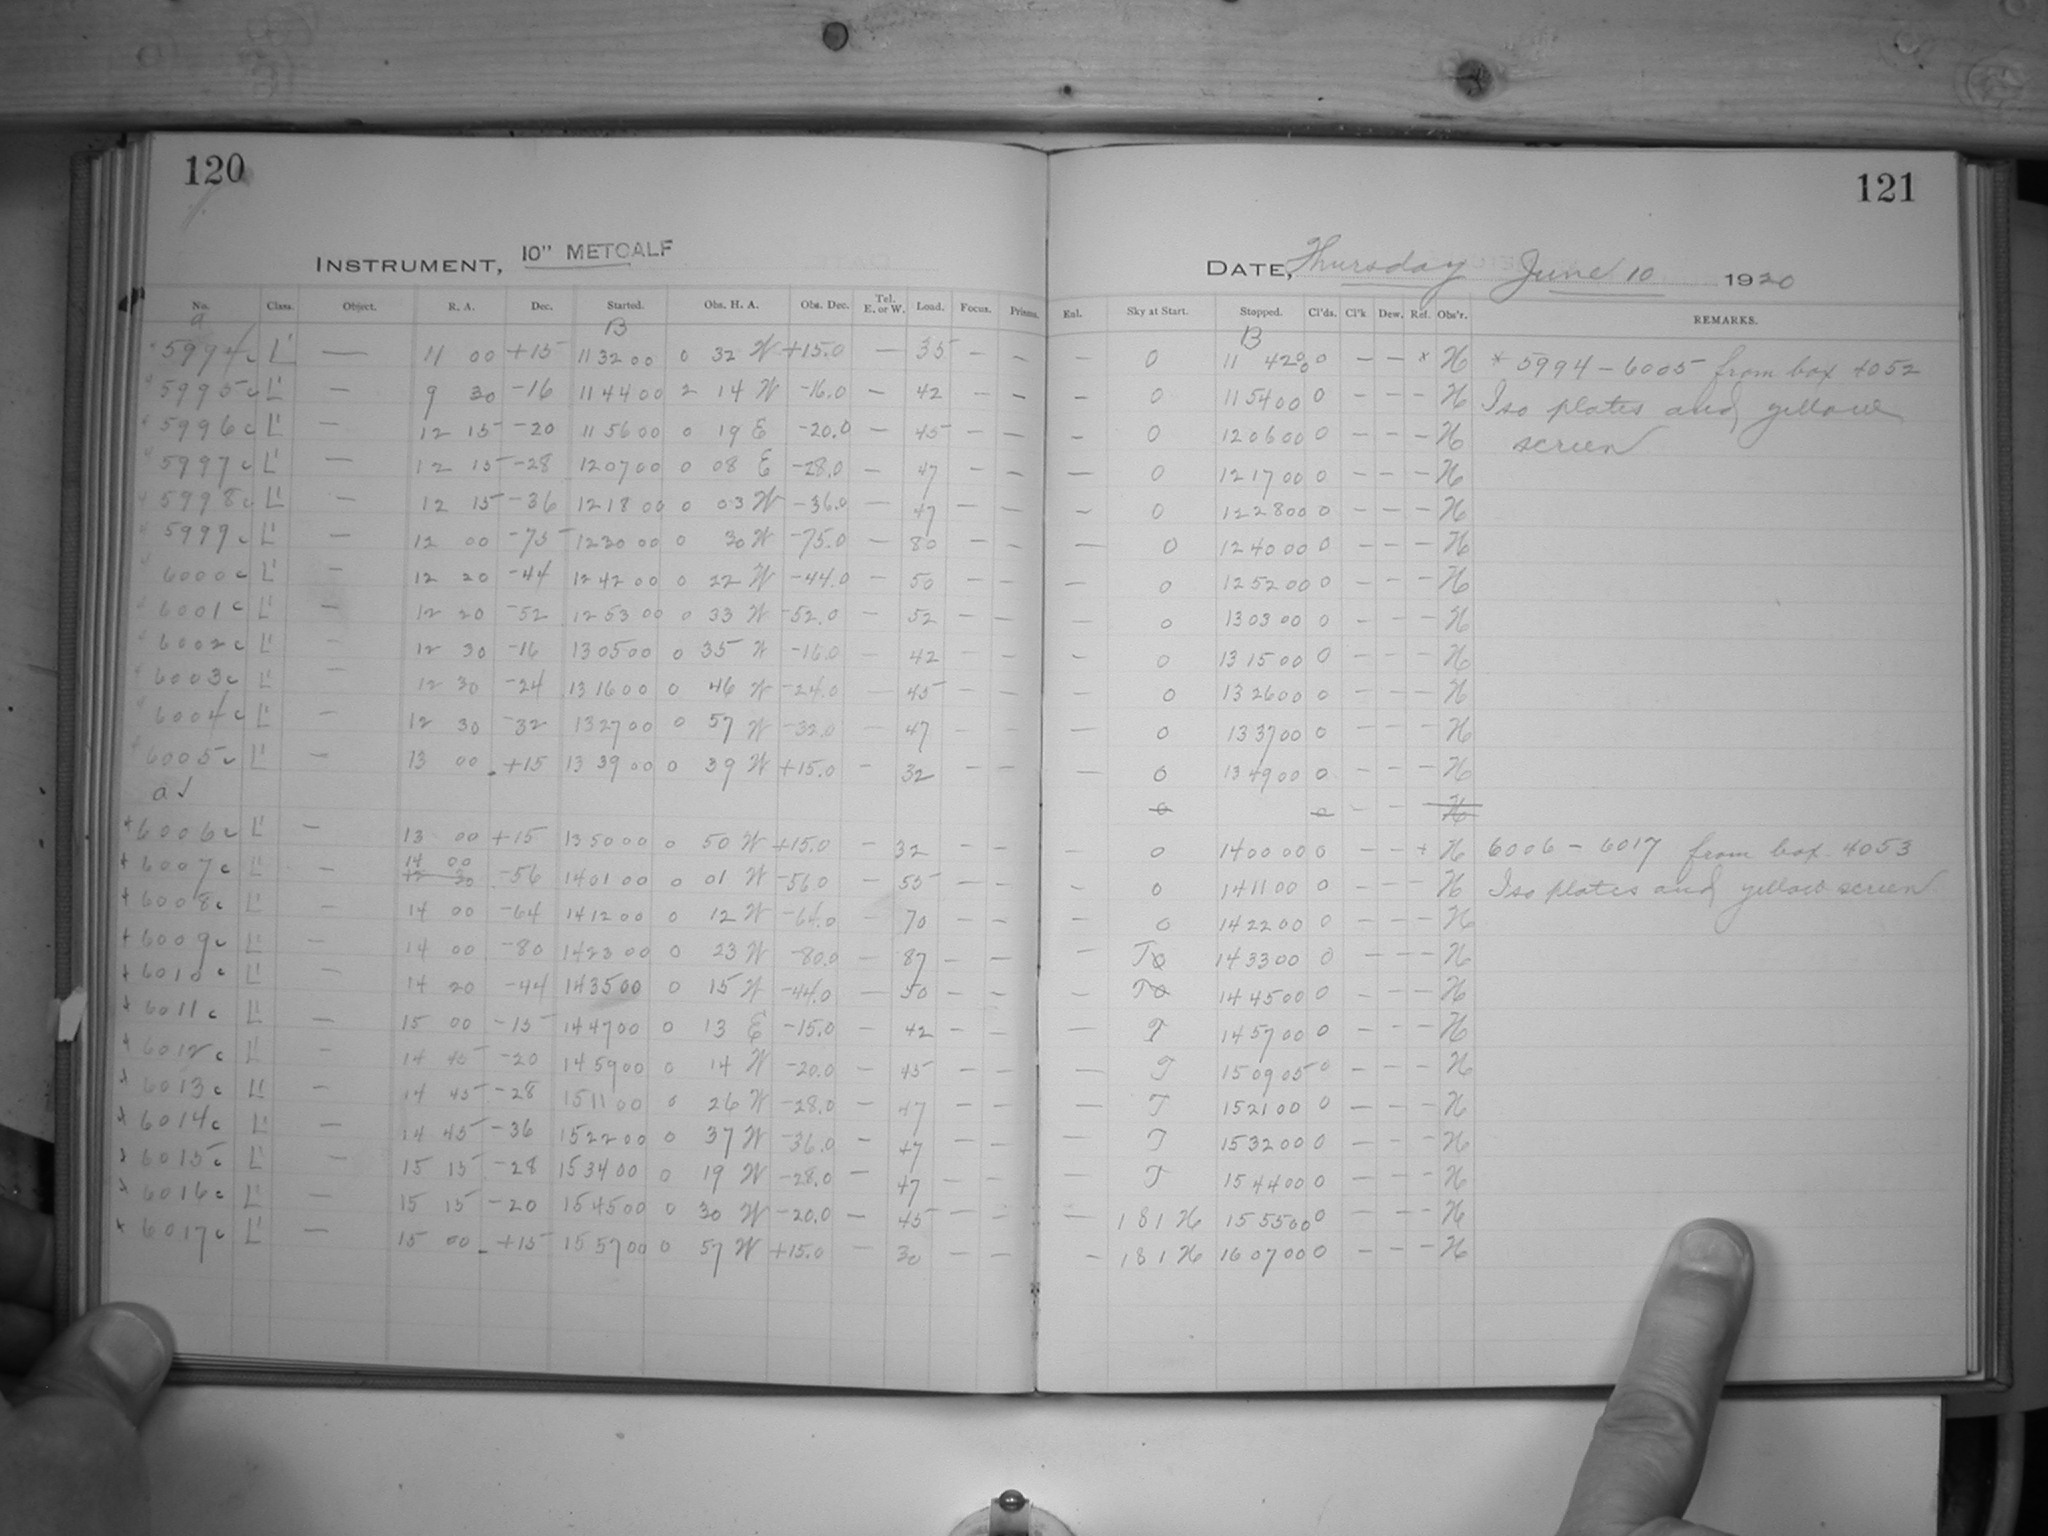 120
121
INSTRUMENT, 10" METCALF
DATE, Thursday June 10 1920
No. Class. Object. R. A. Dec. Started. Obs. H. A. Obs. Dec. Tel. E. or W. Load. Focus. Prisms. Enl. Sky at Start. Stopped. Cl'ds. Cl'k Dew. Ref. Obs'r. REMARKS.
a B B
5994c L' — 11 00 +15 11 32 00 0 32 W +15.0 — 35 — — 0 11 42 00 0 — — * H * 5994 - 6005 from box 4052
5995c L' — 9 30 -16 11 44 00 2 14 W -16.0 — 42 — — — 0 11 54 00 0 — — — H Iso plates and yellow
5996c L' — 12 15 -20 11 56 00 0 19 E -20.0 — 45 — — — 0 12 06 00 0 — — — H screen
5997c L' — 12 15 -28 12 07 00 0 08 E -28.0 — 47 — — — 0 12 17 00 0 — — — H
5998c L' — 12 15 -36 12 18 00 0 03 W -36.0 — 47 — — — 0 12 28 00 0 — — — H
5999c L' — 12 00 -75 12 30 00 0 30 W -75.0 — 80 — — — 0 12 40 00 0 — — — H
6000c L' — 12 20 -44 12 42 00 0 22 W -44.0 — 50 — — — 0 12 52 00 0 — — — H
6001c L' — 12 20 -52 12 53 00 0 33 W -52.0 — 52 — — — 0 13 03 00 0 — — — H
6002c L' — 12 30 -16 13 05 00 0 35 W -16.0 — 42 — — — 0 13 15 00 0 — — — H
6003c L' — 12 30 -24 13 16 00 0 46 W -24.0 — 45 — — — 0 13 26 00 0 — — — H
6004c L' — 12 30 -32 13 27 00 0 57 W -32.0 — 47 — — — 0 13 37 00 0 — — — H
6005c L' — 13 00 +15 13 39 00 0 39 W +15.0 — 32 — — — 0 13 49 00 0 — — — H
a √ 0 0 — — H
6006c L' — 13 00 +15 13 50 00 0 50 W +15.0 — 32 — — 0 14 00 00 0 — — + H 6006 - 6017 from box 4053
6007c L' — 14 00 12 20 -56 14 01 00 0 01 W -56.0 — 55 — — — 0 14 11 00 0 — — — H Iso plates and yellow screen
6008c L' — 14 00 -64 14 12 00 0 12 W -64.0 — 70 — — — 0 14 22 00 0 — — — H
6009c L' — 14 00 -80 14 23 00 0 23 W -80.0 — 87 — — — T0 14 33 00 0 — — — H
6010c L' — 14 20 -44 14 35 00 0 15 W -44.0 — 50 — — — T0 14 45 00 0 — — — H
6011c L' — 15 00 -15 14 47 00 0 13 E -15.0 — 42 — — — T 14 57 00 0 — — — H
6012c L' — 14 45 -20 14 59 00 0 14 W -20.0 — 45 — — — T 15 09 05 0 — — — H
6013c L' — 14 45 -28 15 11 00 0 26 W -28.0 — 47 — — — T 15 21 00 0 — — — H
6014c L' — 14 45 -36 15 22 00 0 37 W -36.0 — 47 — — — T 15 32 00 0 — — — H
6015c L' — 15 15 -28 15 34 00 0 19 W -28.0 — 47 — — — T 15 44 00 0 — — — H
6016c L' — 15 15 -20 15 45 00 0 30 W -20.0 — 45 — — — 181H 15 55 00 0 — — — H
6017c L' — 15 00 +15 15 57 00 0 57 W +15.0 — 30 — — — 181H 16 07 00 0 — — — H